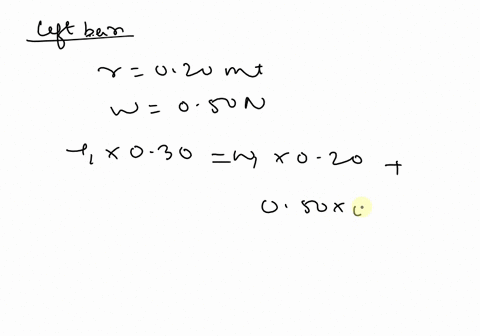 Left bar
r = 0.20 mt
w = 0.50 N
T₁ × 0.30 = w₁ × 0.20 +
0.50 × 0